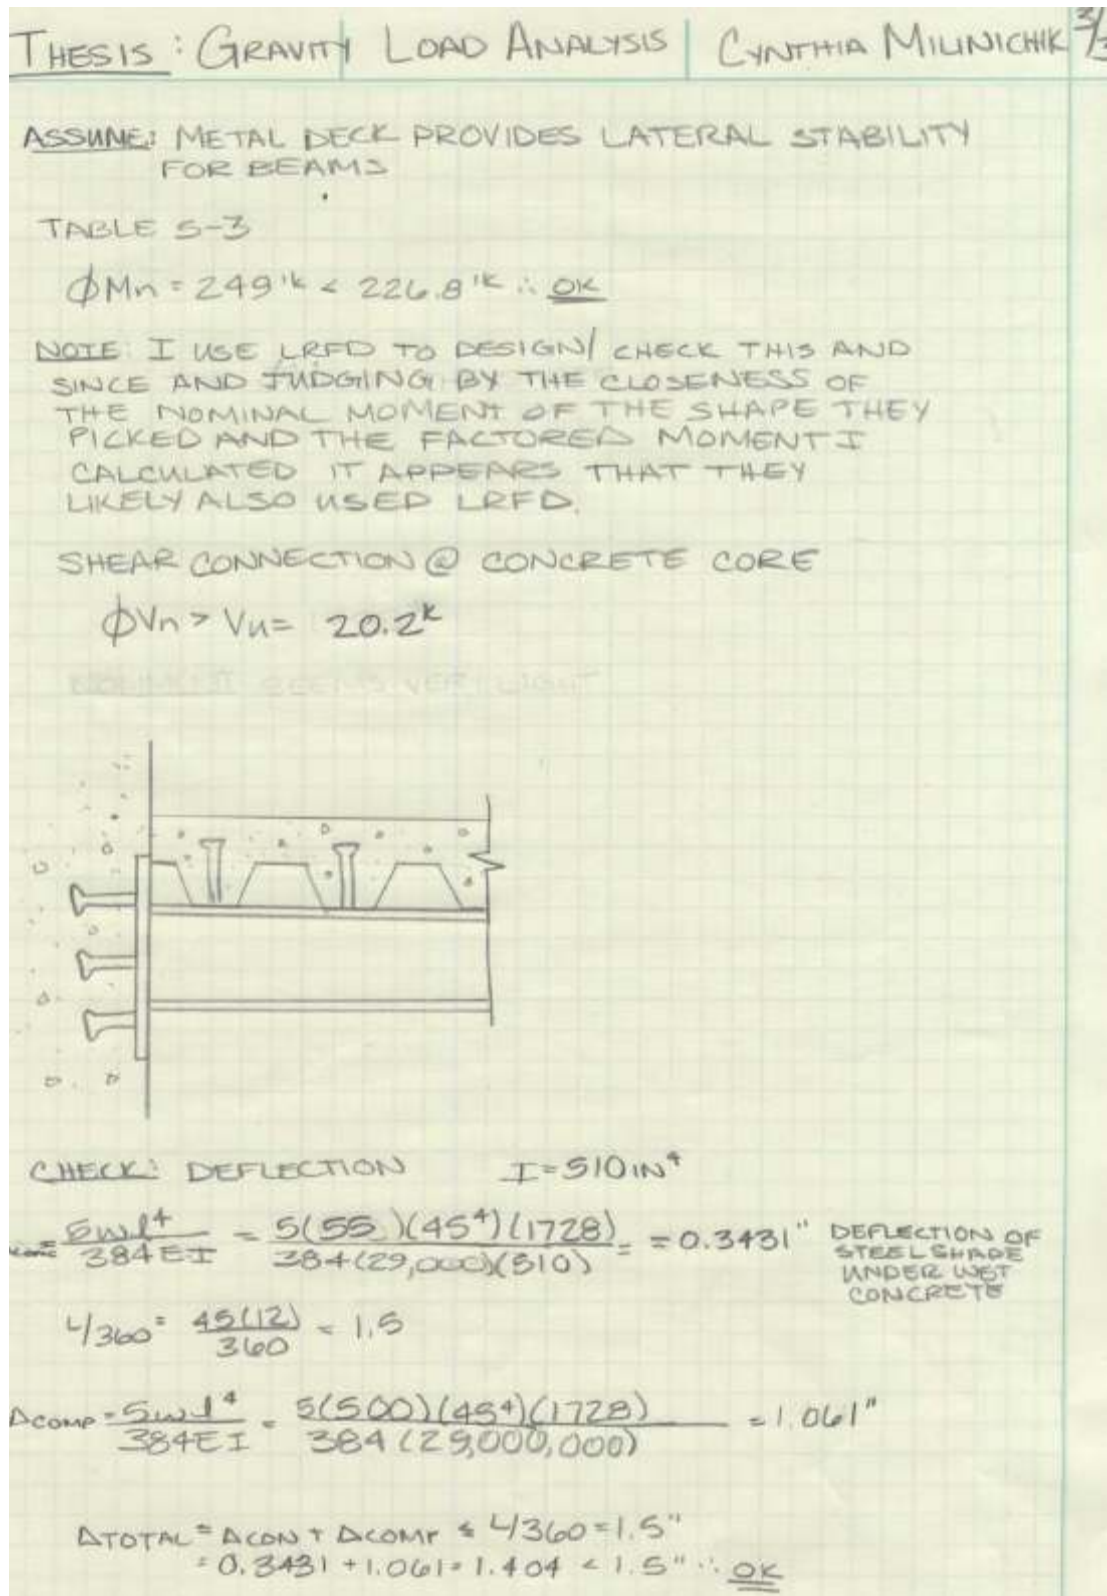 THESIS: GRAVITY LOAD ANALYSIS CYNTHIA MILINICHIK 3/3
ASSUME: METAL DECK PROVIDES LATERAL STABILITY
FOR BEAMS
TABLE 5-3
ϕMn = 249'k < 226.8'k ∴ OK
NOTE: I USE LRFD TO DESIGN/CHECK THIS AND
SINCE AND JUDGING BY THE CLOSENESS OF
THE NOMINAL MOMENT OF THE SHAPE THEY
PICKED AND THE FACTORED MOMENT I
CALCULATED IT APPEARS THAT THEY
LIKELY ALSO USED LRFD.
SHEAR CONNECTION @ CONCRETE CORE
ϕVn > Vu = 20.2k
SEEMS VERY LIGHT
CHECK: DEFLECTION I = 510 IN⁴
= 5wl⁴/384EI = 5(55)(45⁴)(1728)/384(29,000)(510) = = 0.3431" DEFLECTION OF
STEEL SHAPE
UNDER WET
CONCRETE
L/360 = 45(12)/360 = 1.5
ΔCOMP = 5wl⁴/384EI = 5(500)(45⁴)(1728)/384(29,000,000) = 1.061"
ΔTOTAL = ΔCON + ΔCOMP ≤ L/360 = 1.5"
= 0.3431 + 1.061 = 1.404 < 1.5" ∴ OK